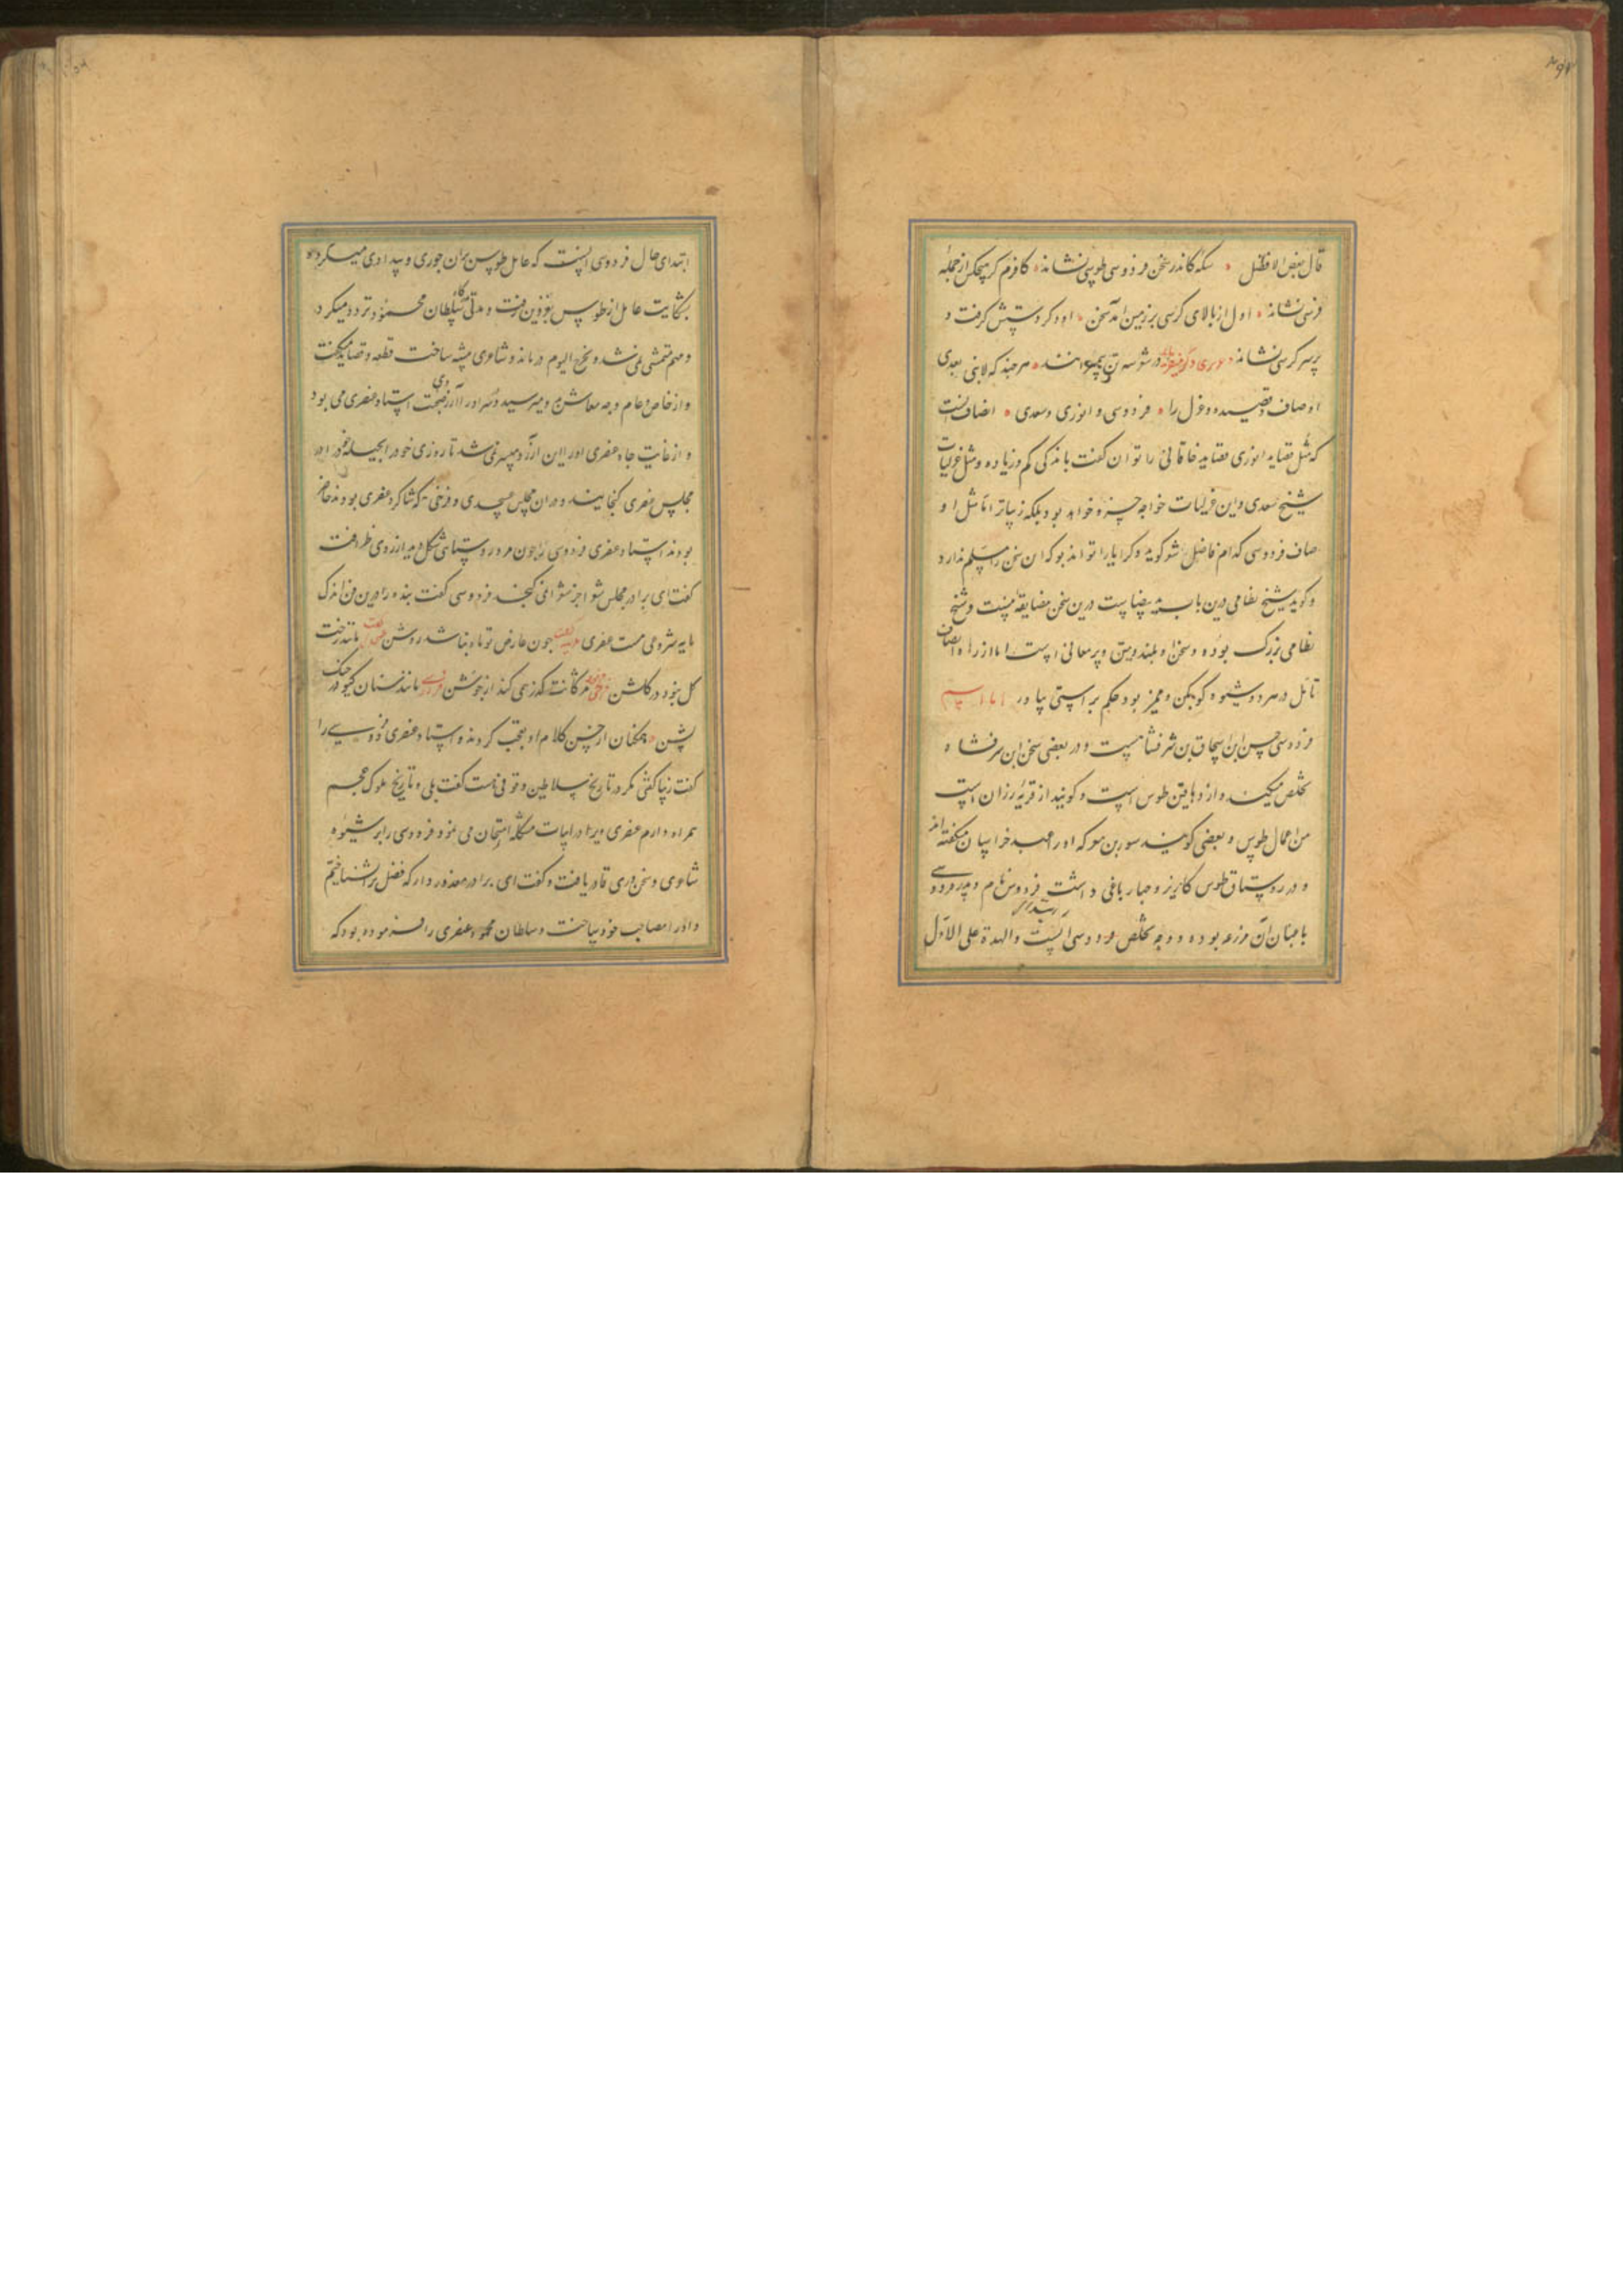 قال بعض الافاضل سکه کاندر سخن فردوسی طوسی نشاند کافرم کر هیچکس از جمله
فرسی نشاند اول از بالای کرسی بر زمین آمد سخن او دکر دستش کرفت و
بر سر کرسی نشاند در شعر سه تن پیمبرانند هر چند که لانبی بعدی
اوصاف و قصیده و غزل را فردوسی و انوری و سعدی انصاف انست
که مثل قصاید انوری قصاید خاقانی را توان کفت باندکی کم و زیاده و مثل غزلیات
شیخ سعدی و این غزلیات خواجه خسرو خواهد بود بلکه زیباتر اما مثل او
صاف فردوسی کدام فاضل شعر کوید و کرا یارا تواند بود که این سخن را مسلم ندارد
و کوید شیخ نظامی درین باب ید بیضاست درین سخن مضایقه نیست و شیخ
نظامی بزرک بوده و سخن او بلند و متین و پر معانی است اما از راه انصاف
تامل در هر دو شیوه کو بکن و ممیز بود حکم براستی بیاور اما اسم
فردوسی حسن ابن اسحاق بن شرفشاه است و در بعضی سخن ابن شرفشاه
تخلص میکند و از دهاقین طوس است و کویند از قریه رزان است
من اعمال طوس و بعضی کویند سوری بن معز که او را عمید خراسان میکفته اند
و در روستاق طوس کاریز و چهار باغی داشت فردوس نام و پدر فردوسی
باغبان آن مزرعه بوده و وجه تخلص فردوسی آنست والعهدة علی الاول
ابتدای حال فردوسی آنست که عامل طوس بر آن جوری و بیدادی میکرده
بشکایت عامل از طوس بغزنین رفت و مدتی بدرکاه سلطان محمود تردد میکرد
و مهم متمشی نمی شد و بخرج الیوم درماند و شاعری پیشه ساخت قطعه و قصاید میکفت
و از خاص و عام وجه معاش بدو میرسید و در سر او آرزوی صحبت استاد عنصری می بود
و از غایت جاه عنصری او را این آرزو میسر نمی شد تا روزی خود را بحیله خود را در
مجلس عنصری کنجانید و در آن مجلس عسجدی و فرخی که شاکرد عنصری بودند حاضر
بودند استاد عنصری فردوسی را چون مرد روستای شکل دید از روی ظرافت
کفت ای برادر در مجلس شعرا جز شعرا نمی کنجند فردوسی کفت بنده را درین فن اندک
مایه شروعی هست عنصری کفت چون عارض تو ماه نباشد روشن مانند رخت
کل نبود در کلشن مژکانت کذر همی کند از جوشن مانند سنان کیو در جنک
پشن همکنان از حسن کلام او تعجب کردند و استاد عنصری فردوسی را
کفت زیبا کفتی مکر در تاریخ سلاطین وقوفی هست کفت بلی و تاریخ ملوک عجم
همراه دارم عنصری ویرا در ابیات مشکله امتحان می نمود فردوسی را بر شیوه
شاعری و سخن وری قادر یافت و کفت ای برادر معذور دار که فضل ترا نشناختم
و او را مصاحب خود ساخت و سلطان محمود عنصری را فرموده بود که